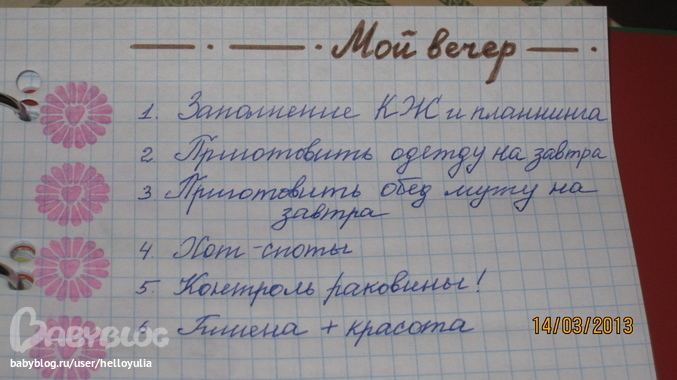 Мой вечер
1. Заполнение КЖ и планнинга
2. Приготовить одежду на завтра
3 Приготовить обед мужу на
завтра
4. Хот-споты
5. Контроль раковины!
6. Гигиена + красота
14/03/2013
BABYBLOG
babyblog.ru/user/helloyulia